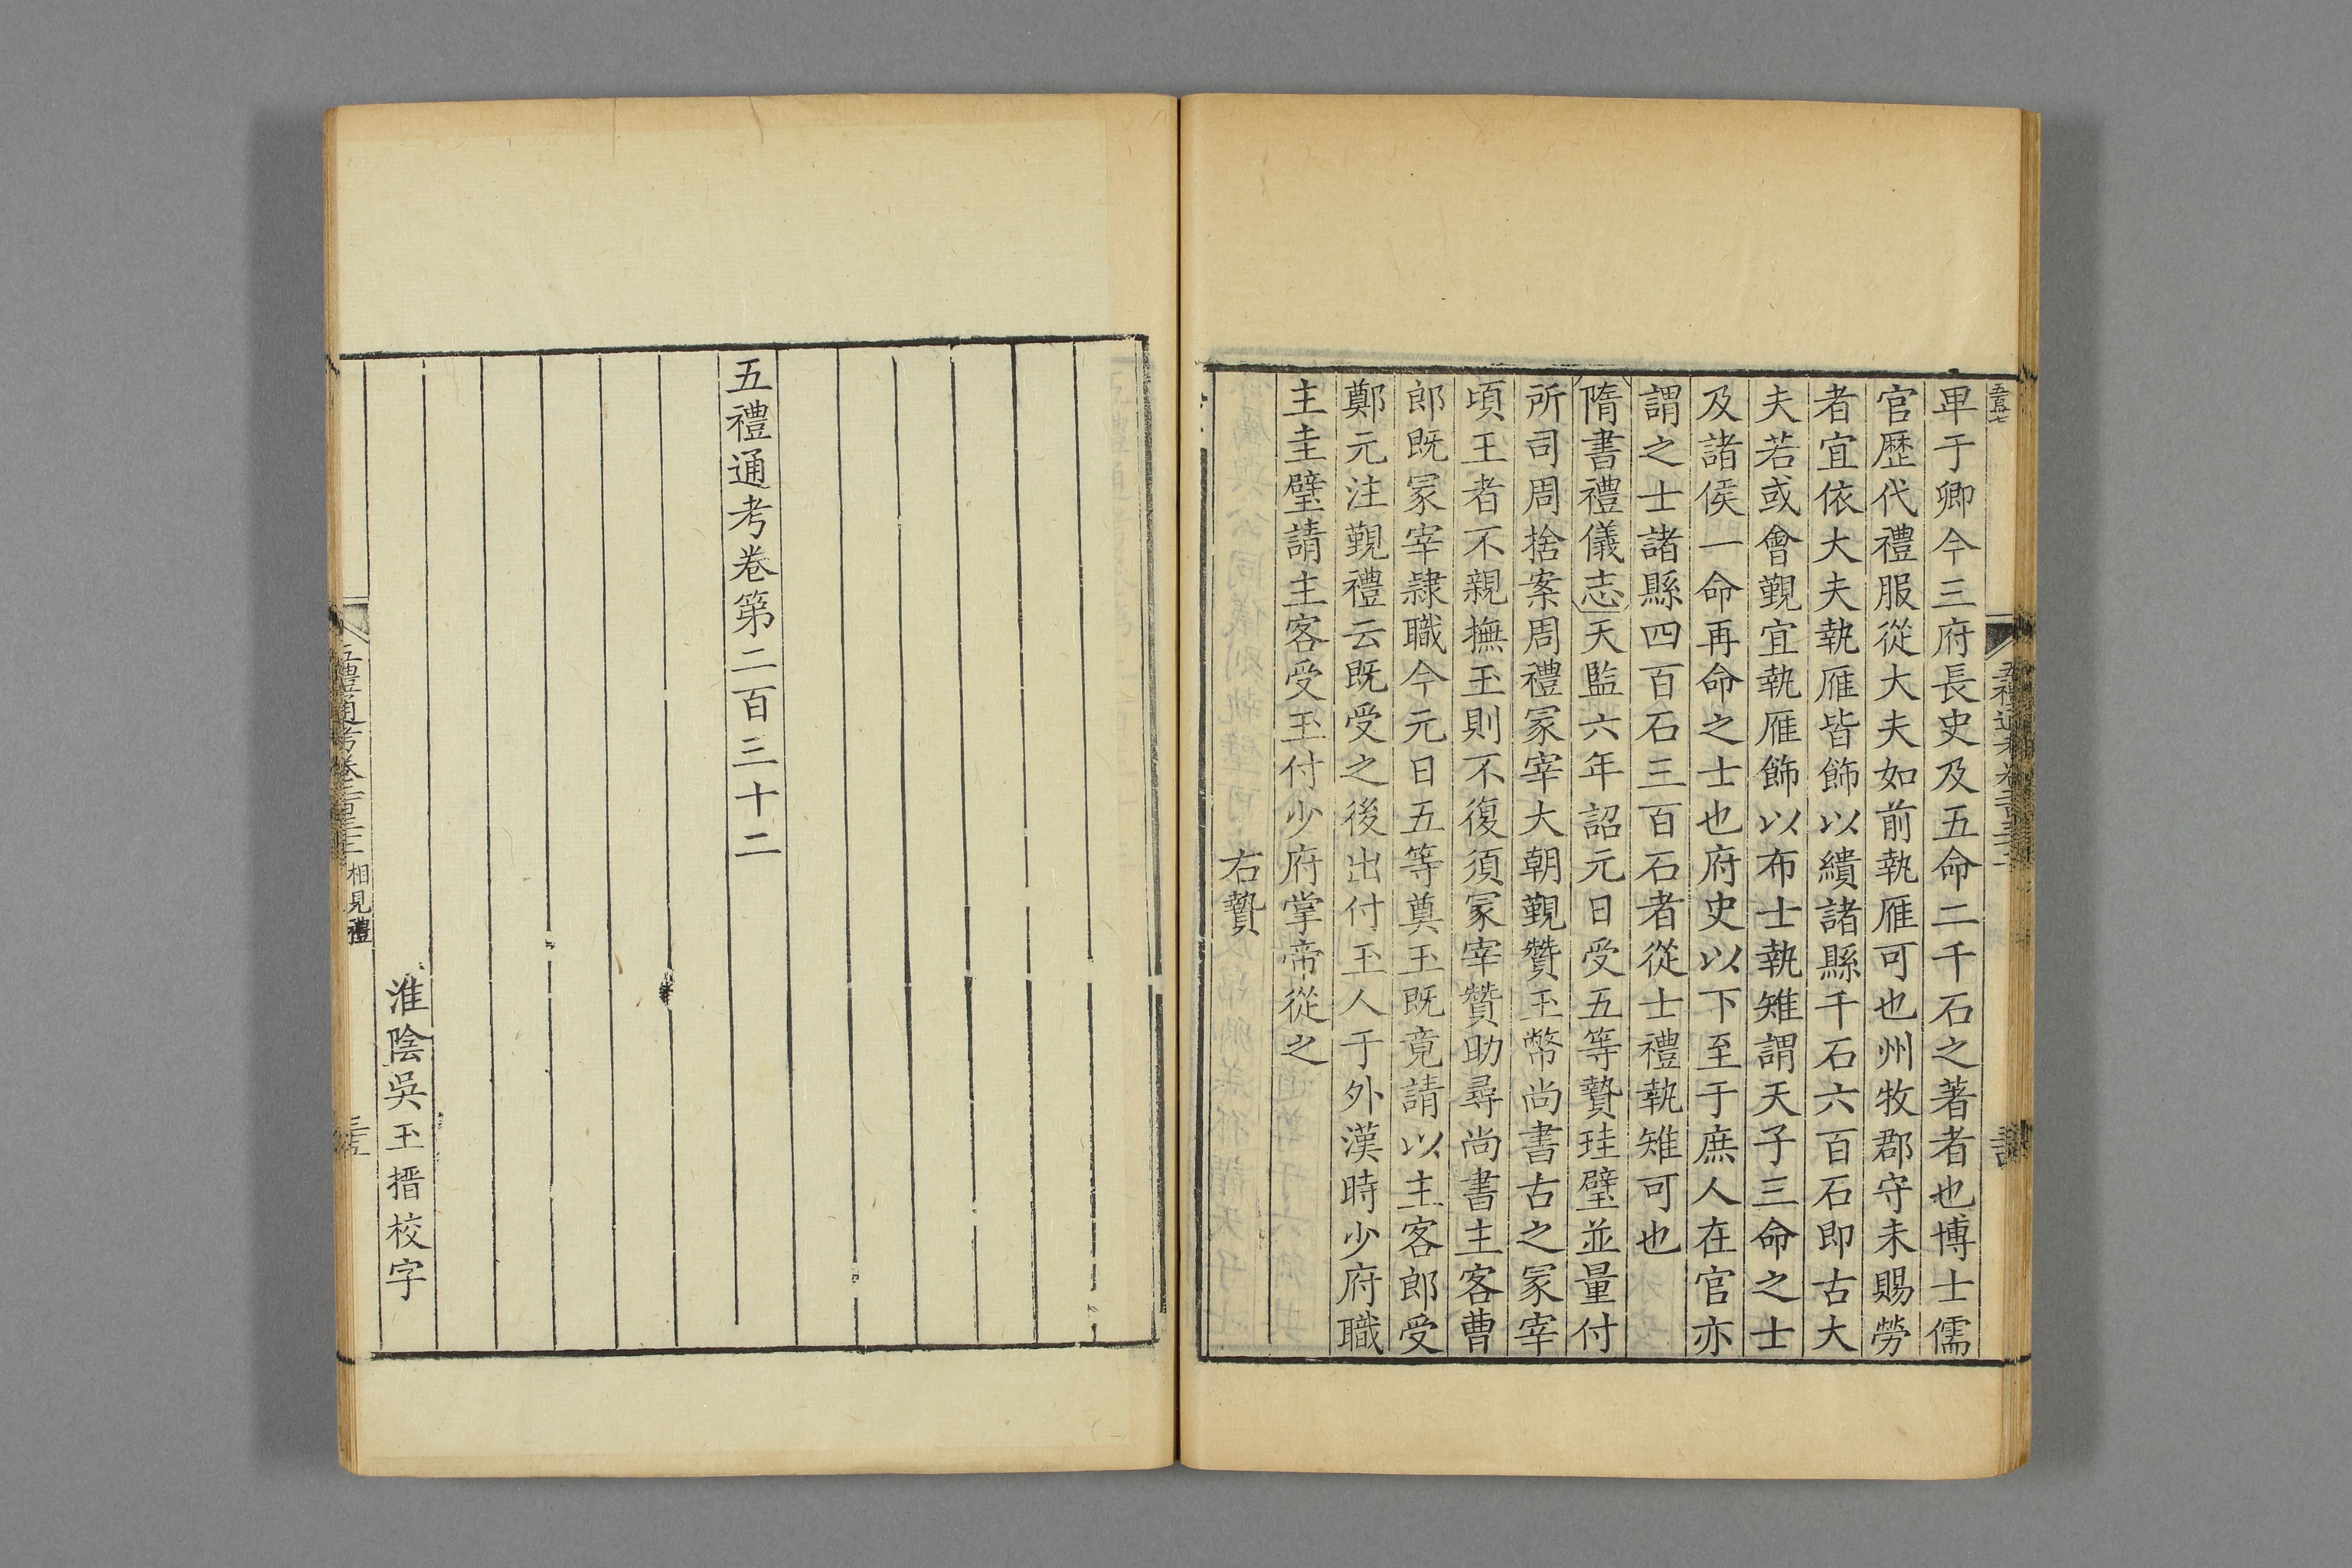 卑于卿今三府長史及五命二千石之著者也博士儒
官歴代禮服從大夫如前執雁可也州牧郡守未賜勞
者宜依大夫執雁皆飾以繢諸縣千石六百石即古大
夫若或會覲宜執雁飾以布士執雉謂天子三命之士
及諸侯一命再命之士也府史以下至于庶人在官亦
謂之士諸縣四百石三百石者從士禮執雉可也
隋書禮儀志天監六年詔元日受五等贄珪璧並量付
所司周捨案周禮冡宰大朝覲贊玉幣尚書古之冡宰
頃王者不親撫玉則不復須冡宰贊助尋尚書主客曹
郎既冡宰隷職今元日五等奠玉既竟請以主客郎受
鄭元注覲禮云既受之後出付玉人于外漢時少府職
主圭璧請主客受玉付少府掌帝從之
右贄
五禮通考卷第二百三十二
淮陰吳玉搢校字
五禮通考卷二百三十二
相見禮